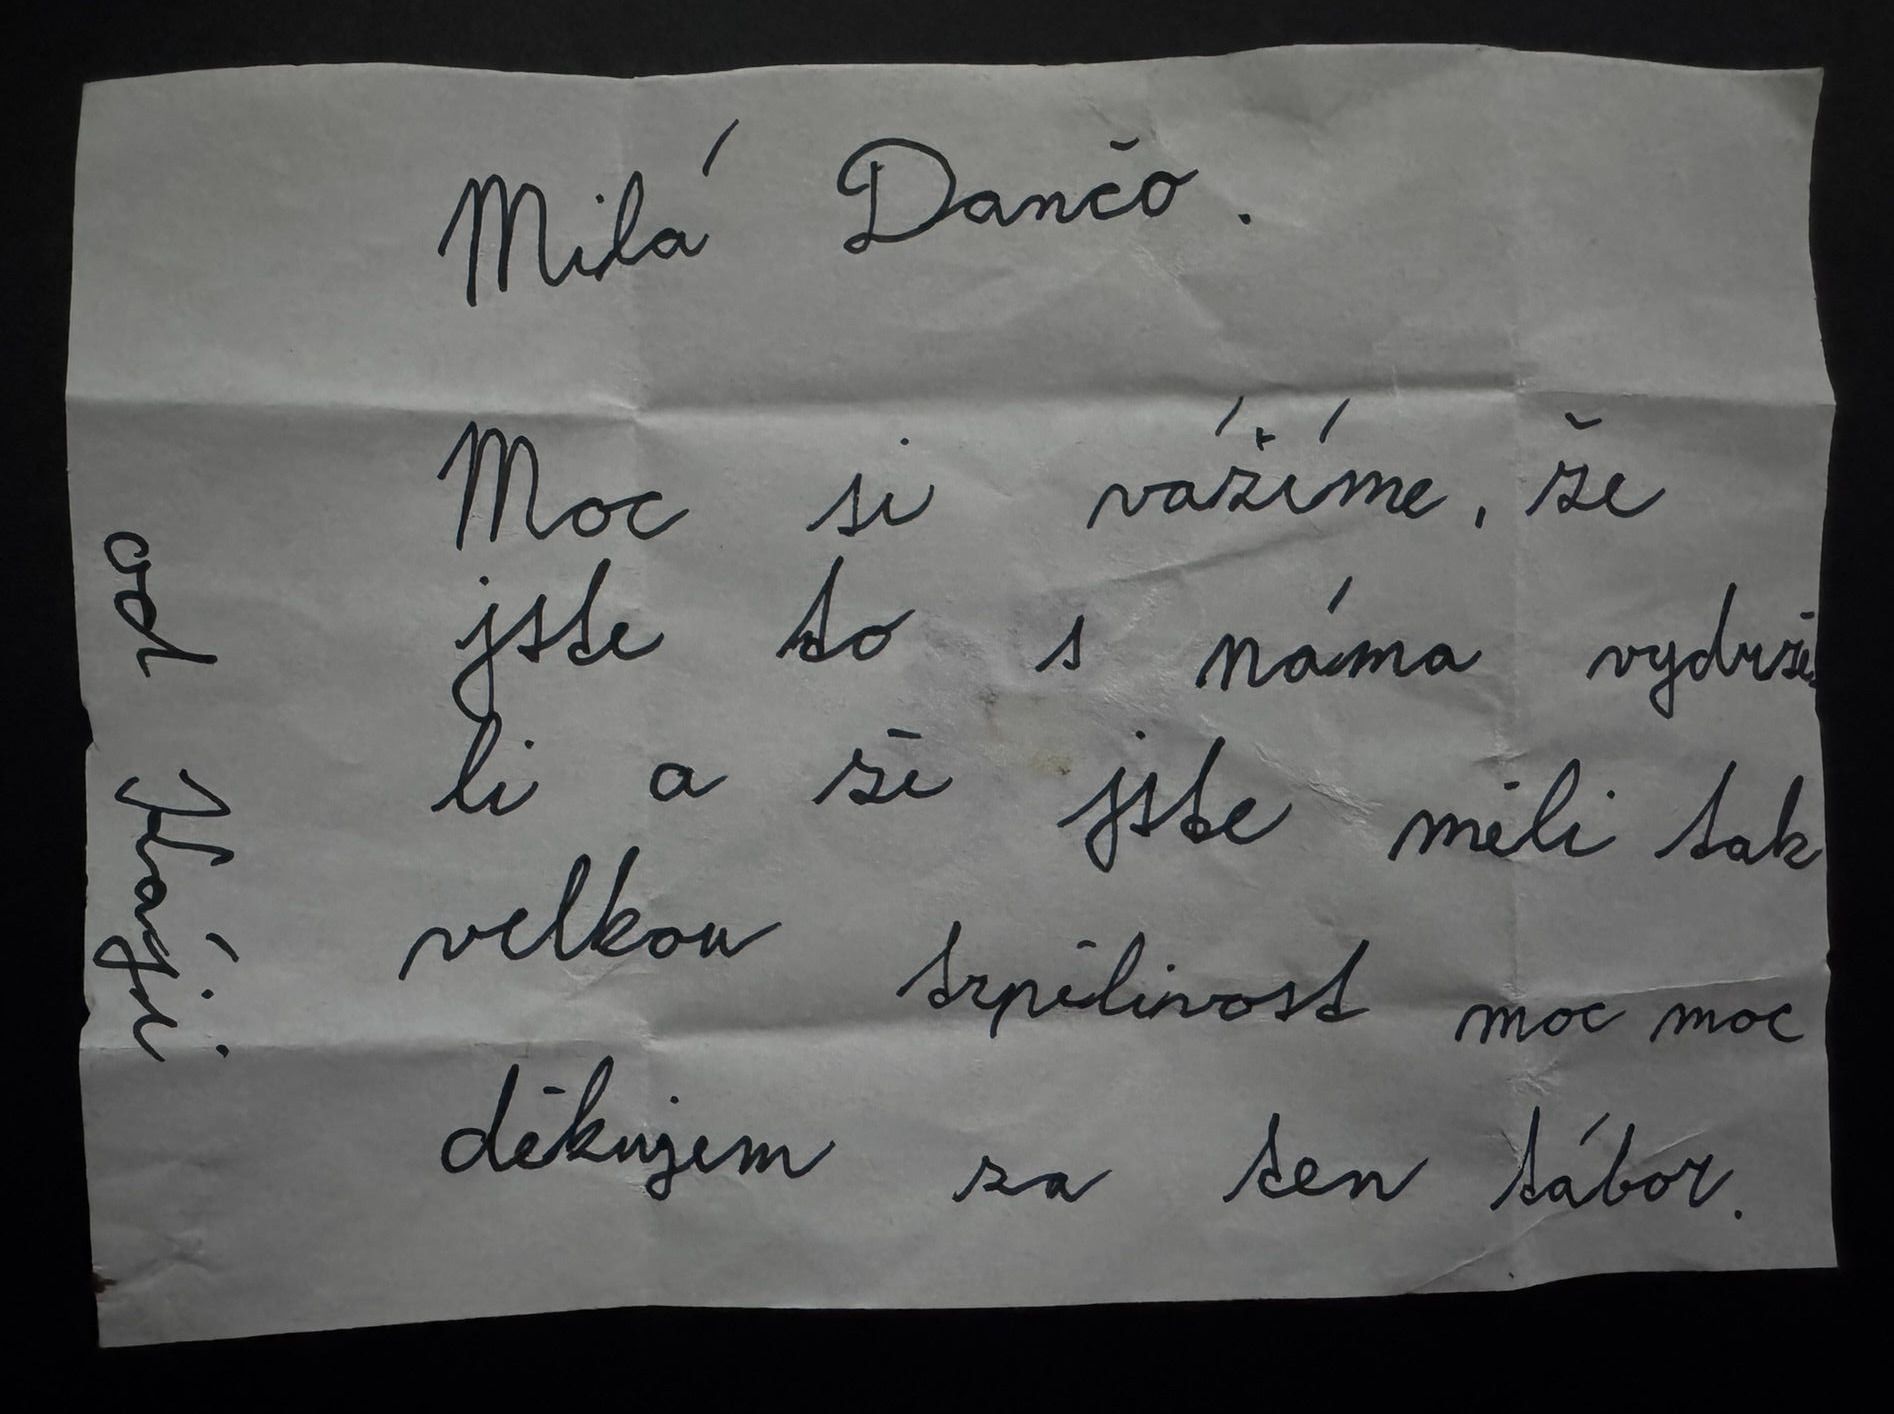 Milá Dančo.
Moc si vážíme, že
jste to s náma vydrže-
li a že jste měli tak
velkou trpělivost moc moc
děkujem za ten tábor.
od Káji